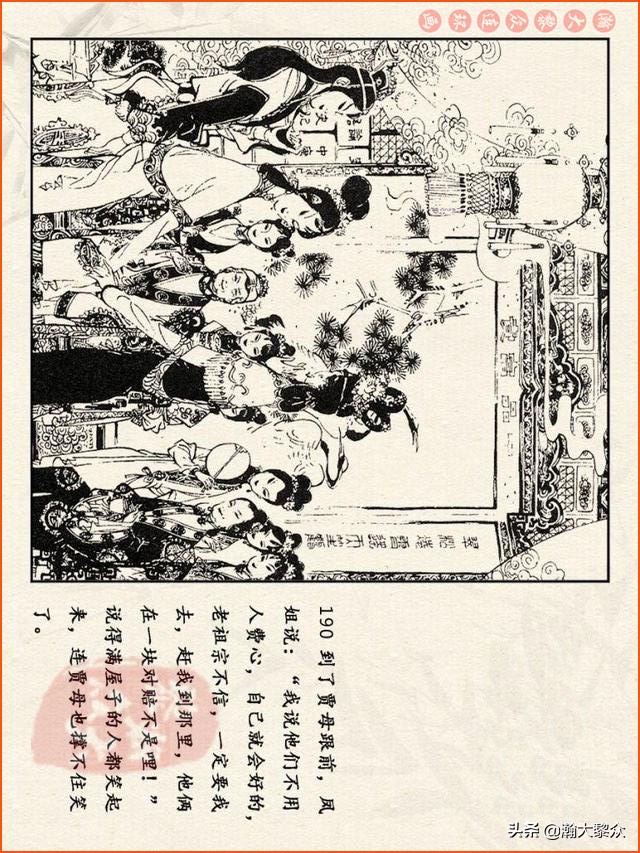 瀚大黎众连环画
190 到了贾母跟前，凤
姐说：“我说他们不用
人费心，自己就会好的，
老祖宗不信，一定要我
去，赶我到那里，他俩
在一块对赔不是哩！”
说得满屋子的人都笑起
来，连贾母也撑不住笑
了。
头条 @瀚大黎众